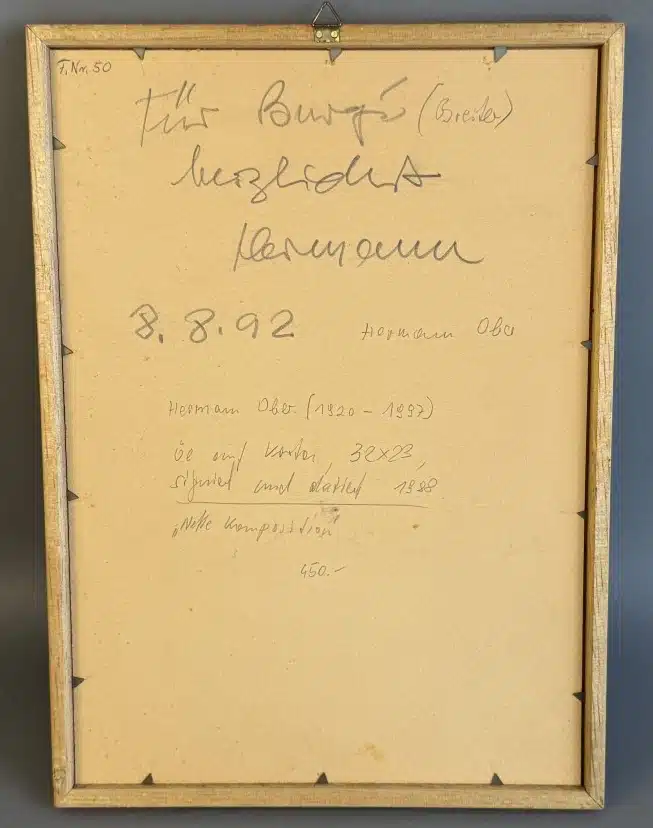 F. Nr. 50
Für Burgi (Breiter)
herzlichst
Hermann
8. 8. 92 Hermann Ober
Hermann Ober (1920 - 1997)
Öl auf Karton, 32x23,
signiert und datiert 1988
Komposition"
450.-